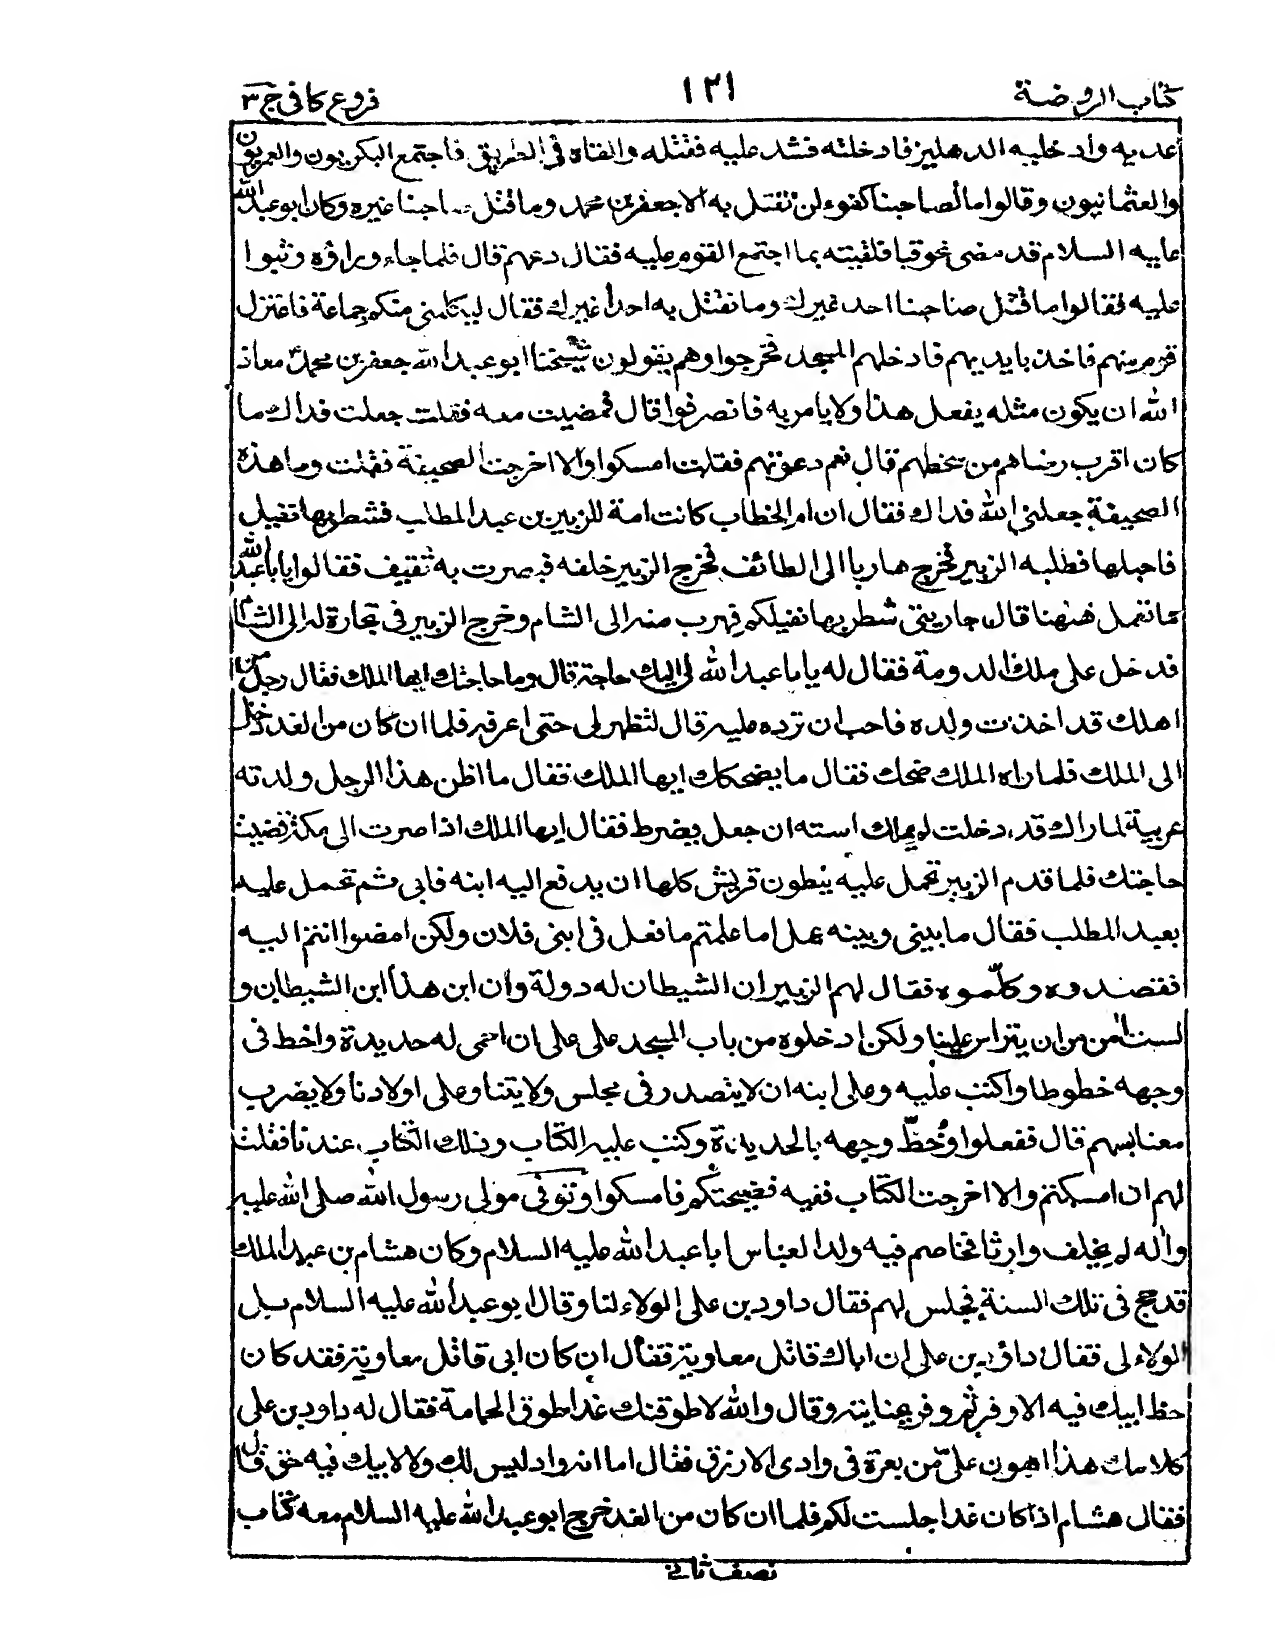 كتاب الروضة
١٢١
فروع كافى ج ٣
عديه وادخليه الدهليز فادخلته فشد عليه فقتله والقاه في الطريق فاجتمع البكريون والعمريون
والعثمانيون وقالوا ما لصاحبنا كفوء لن نقتل به الا جعفر بن محمد وما قتل صاحبنا غيره وكان ابو عبد الله
عليه السلام قد مضى نحو قبا فلقيته بما اجتمع القوم عليه فقال دعهم قال فلما جاء وراؤه وثبوا
عليه فقالوا ما قتل صاحبنا احد غيرك وما نقتل به احدا غيرك فقال ليكلمنى منكم جماعة فاعتزل
قوم منهم فاخذ بايديهم فادخلهم المسجد فخرجوا وهم يقولون شيخنا ابو عبد الله جعفر بن محمد معاذ
الله ان يكون مثله يفعل هذا ولا يامر به فانصرفوا قال فمضيت معه فقلت جعلت فداك ما
كان اقرب رضاهم من سخطهم قال نعم دعوتهم فقلت امسكوا والا اخرجت الصحيفة فقلت وما هذه
الصحيفة جعلنى الله فداك فقال ان ام الخطاب كانت امة للزبير بن عبد المطلب فشطر بها نفيل
فاحبلها فطلبه الزبير فخرج هاربا الى الطائف فخرج الزبير خلفه فبصرت به ثقيف فقالوا يا با عبد الله
ما تعمل ههنا قال جاريتى شطر بها نفيلكم فهرب منه الى الشام وخرج الزبير فى تجارة له الى الشام
فدخل على ملك الدومة فقال له يا با عبد الله لى اليك حاجة قال وما حاجتك ايها الملك فقال رجل من
اهلك قد اخذت ولده فاحب ان ترده عليه قال ليظهر لى حتى اعرفه فلما ان كان من الغد دخل
الى الملك فلما راه الملك ضحك فقال ما يضحكك ايها الملك فقال ما اظن هذا الرجل ولدته
عربية لما راك قد دخلت لم يملك استه ان جعل يضرط فقال ايها الملك اذا صرت الى مكة قضيت
حاجتك فلما قدم الزبير تحمل عليه ببطون قريش كلها ان يدفع اليه ابنه فابى ثم تحمل عليه
بعبد المطلب فقال ما بينى وبينه عمل اما علمتم ما فعل فى ابنى فلان ولكن امضوا انتم اليه
فقصدوه وكلّموه فقال لهم الزبير ان الشيطان له دولة وان ابن هذا ابن الشيطان و
لست امن من ان يتراس علينا ولكن ادخلوه من باب المسجد على على ان احمى له حديدة واخط فى
وجهه خطوطا واكتب عليه وعلى ابنه ان لا يتصدر فى مجلس ولا يتنا وعلى اولادنا ولا يضرب
معنا بسهم قال ففعلوا وخطّ وجهه بالحديدة وكتب عليه الكتاب وذلك الكتاب عندنا فقلت
لهم ان امسكتم والا اخرجت الكتاب ففيه فضيحتكم فامسكوا وتوفى مولى رسول الله صلى الله عليه
واله لم يخلف وارثا فخاصم فيه ولد العباس ابا عبد الله عليه السلام وكان هشام بن عبد الملك
قد حج فى تلك السنة فجلس لهم فقال داود بن على الولاء لنا وقال ابو عبد الله عليه السلام بل
الولاء لى فقال داؤد بن على ان اباك قاتل معاوية فقال ان كان ابى قاتل معاوية فقد كان
حظ ابيك فيه الاوفر ثم فر بجنايته وقال والله لاطوقنك غدا طوق الحمامة فقال له داود بن على
كلامك هذا اهون علىّ من بعرة فى وادى الازرق فقال اما انه واد ليس لك ولا لابيك فيه حق قال
فقال هشام اذا كان غدا جلست لكم فلما ان كان من الغد خرج ابو عبد الله عليه السلام معه كتاب
نصف ثانى